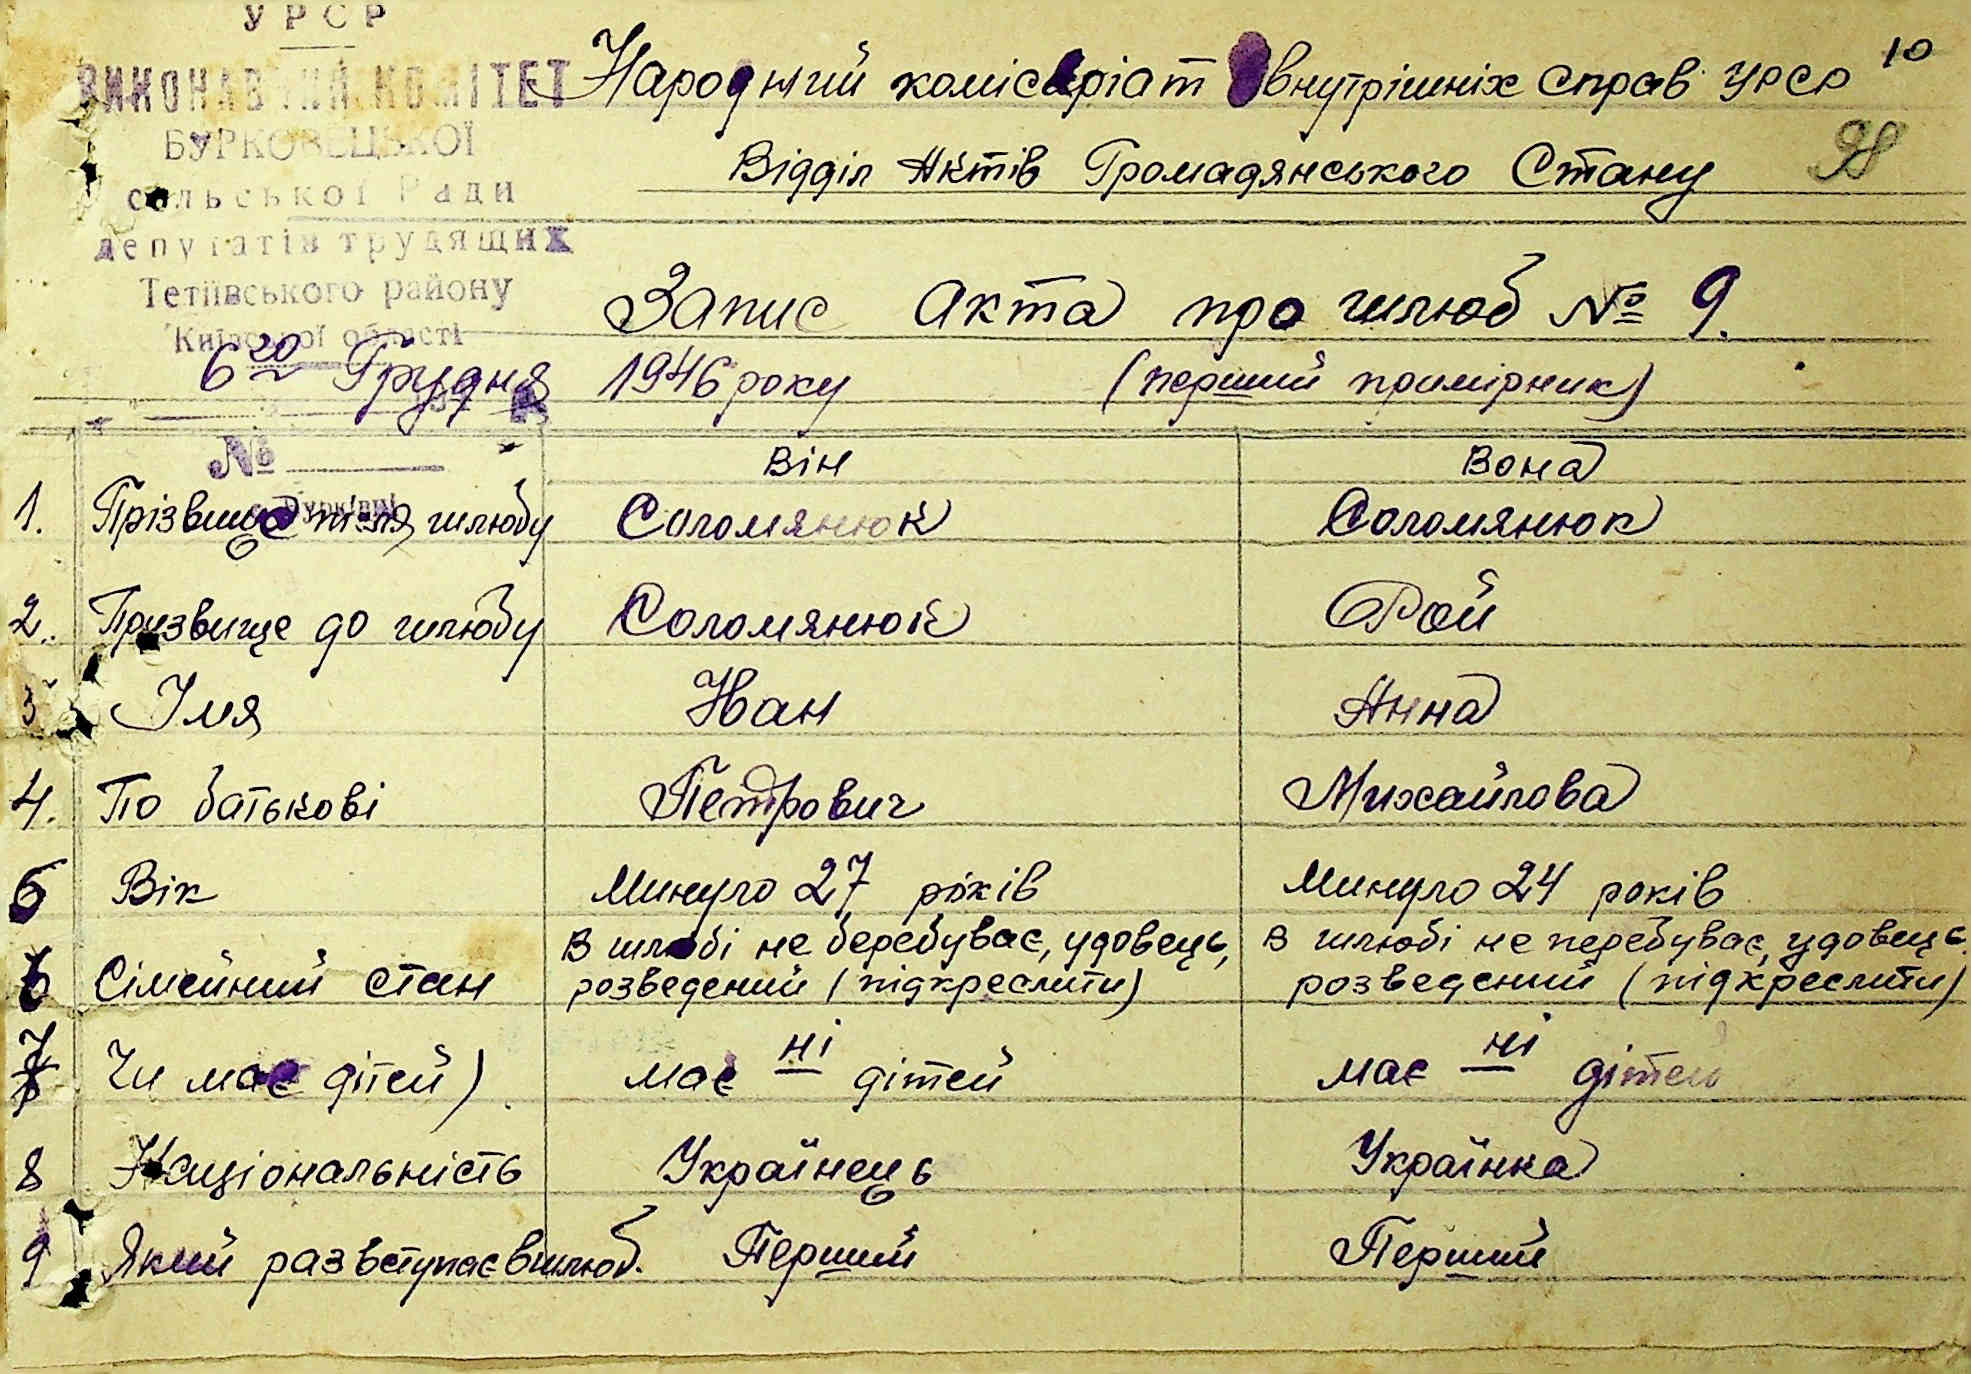 УРСР
ВИКОНАВЧИЙ КОМІТЕТ
БУРКОВЕЦЬКОЇ
сільської Ради
депутатів трудящих
Тетіївського району
Київської області
№
10
Народний комісаріат внутрішніх справ УРСР
98
Відділ Актів Громадянського Стану
Запис Акта про шлюб № 9.
6го Грудня 1946 року (перший примірник)
Він Вона
1. Прізвище після шлюбу Соломянюк Соломянюк
2. Призвище до шлюбу Соломянюк Рой
3 Імя Иван Анна
4. По батькові Петрович Михайлова
5 Вік Минуло 27 років Минуло 24 років
6 Сімейний стан В шлюбі не перебуває, удовець, розведений (підкреслити) В шлюбі не перебуває, удовець розведений (підкреслити)
7 Чи має дітей) має ні дітей має ні дітей
8 Національність Українець Українка
9 Який раз вступає в шлюб. Перший Перший